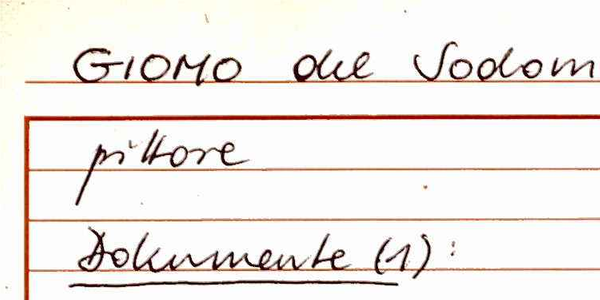 GIOMO del Sodom
pittore
Dokumente (1):